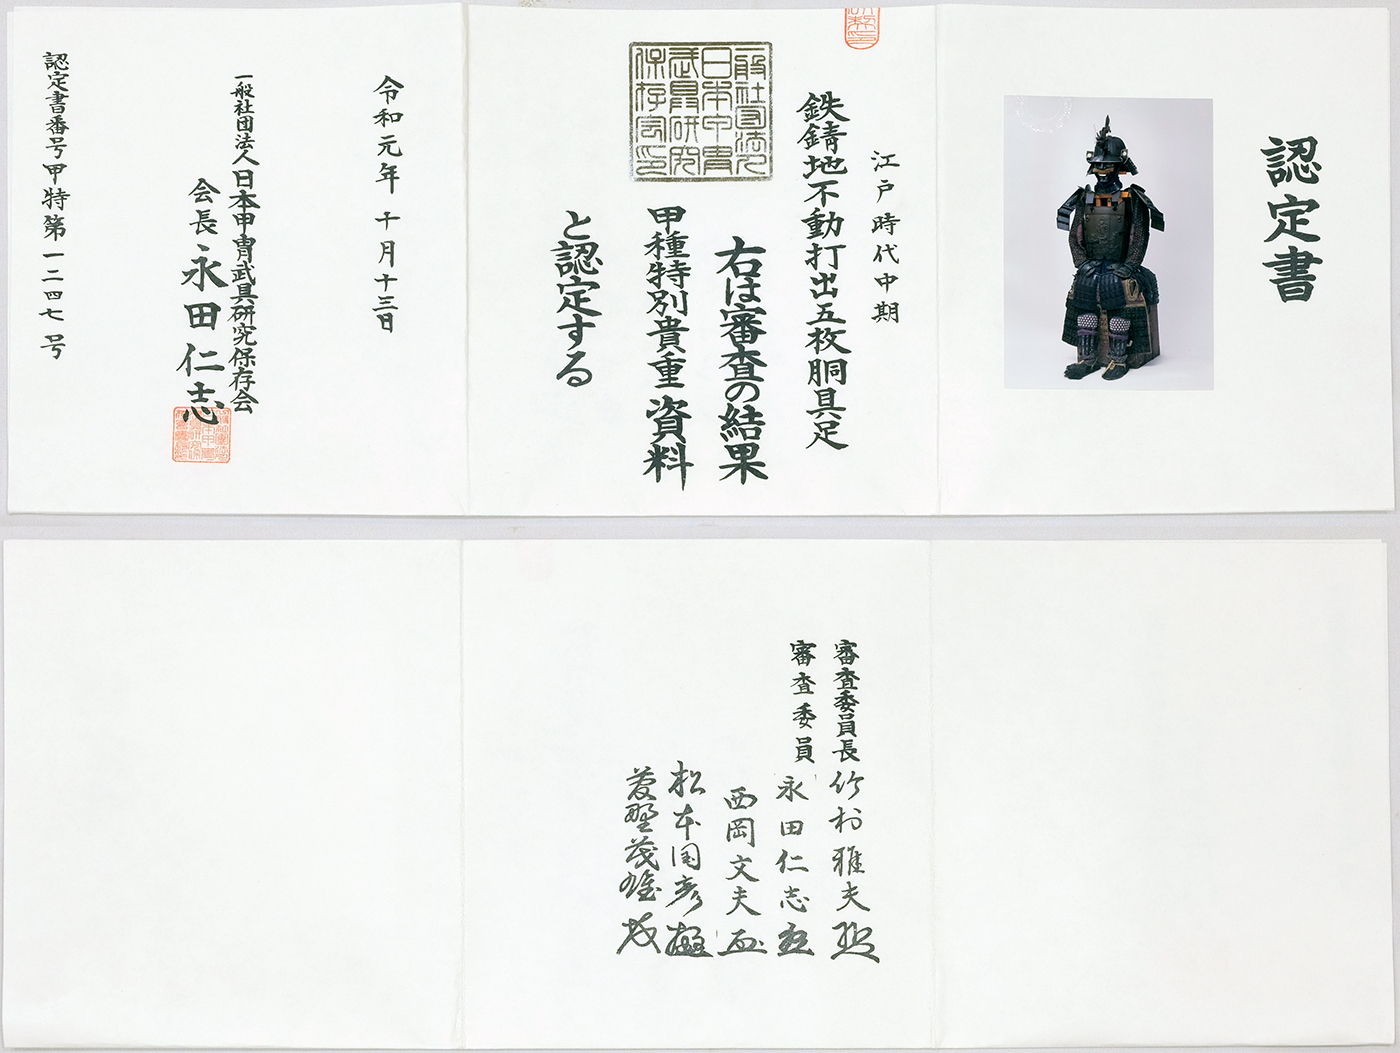 認定書
江戸時代中期
鉄錆地不動打出五枚胴具足
右は審査の結果
甲種特別貴重資料
と認定する
一般社団法人
日本甲冑
武具研究
保存会印
令和元年十月十三日
一般社団法人日本甲冑武具研究保存会
会長永田仁志
認定書番号甲特第一二四七号
審査委員長竹村雅夫
審査委員永田仁志
西岡文夫
松本国彦
菱野茂雄